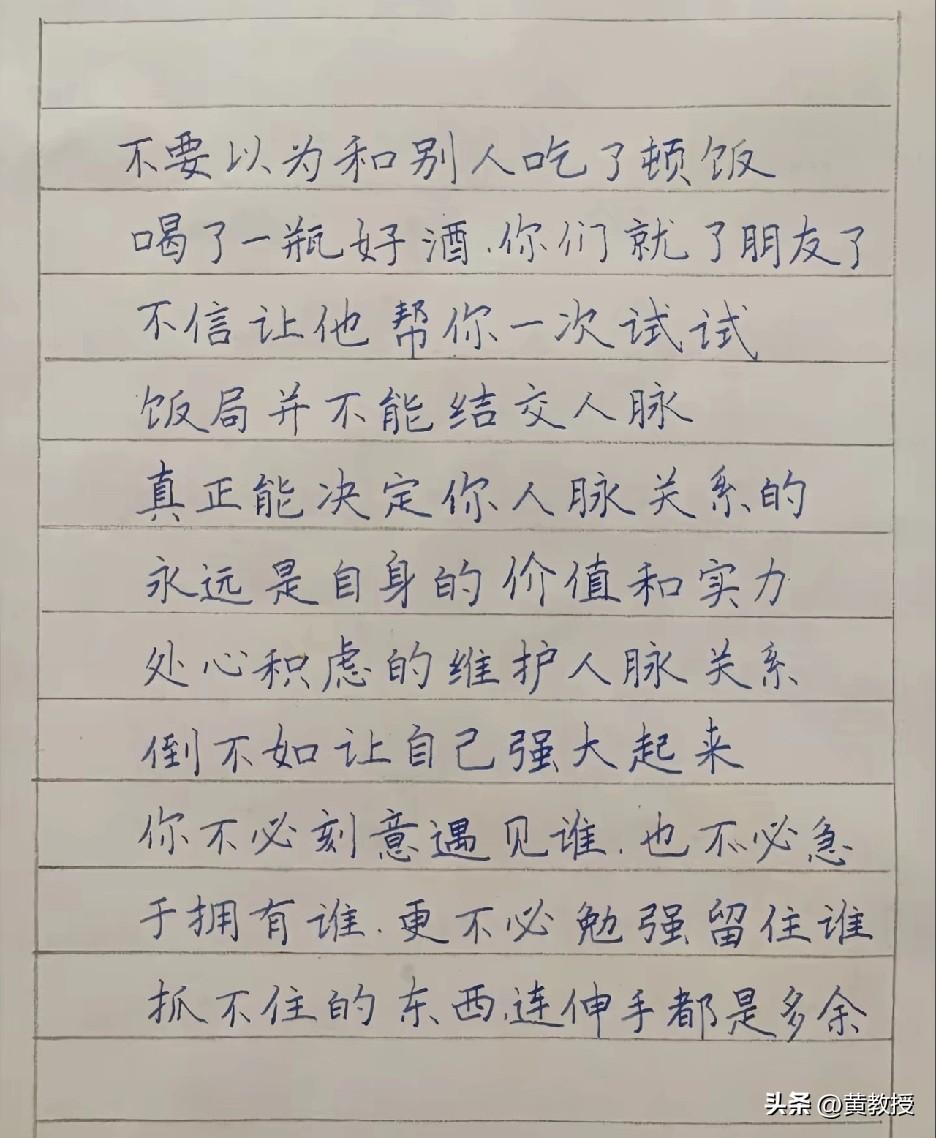 不要以为和别人吃了顿饭
喝了一瓶好酒.你们就了朋友了
不信让他帮你一次试试
饭局并不能结交人脉
真正能决定你人脉关系的
永远是自身的价值和实力
处心积虑的维护人脉关系
倒不如让自己强大起来
你不必刻意遇见谁.也不必急
于拥有谁.更不必勉强留住谁
抓不住的东西.连伸手都是多余
头条 @黄教授